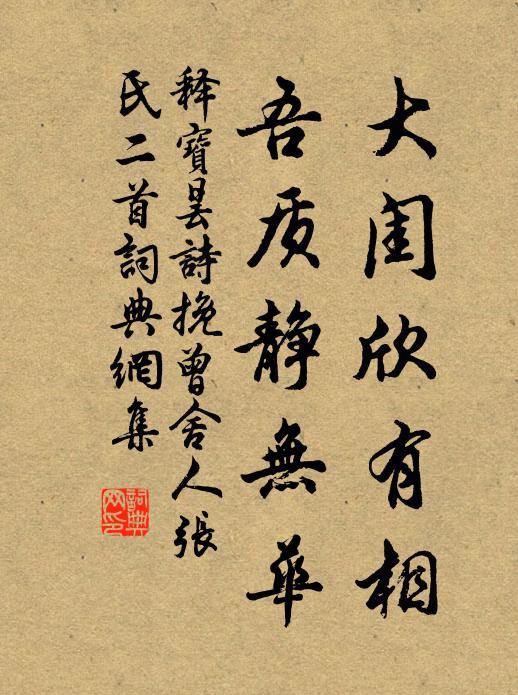 大闺欣有相
吾质静無華
释寶昙詩挽曾舍人張
氏二首詞典網集
詞典网印